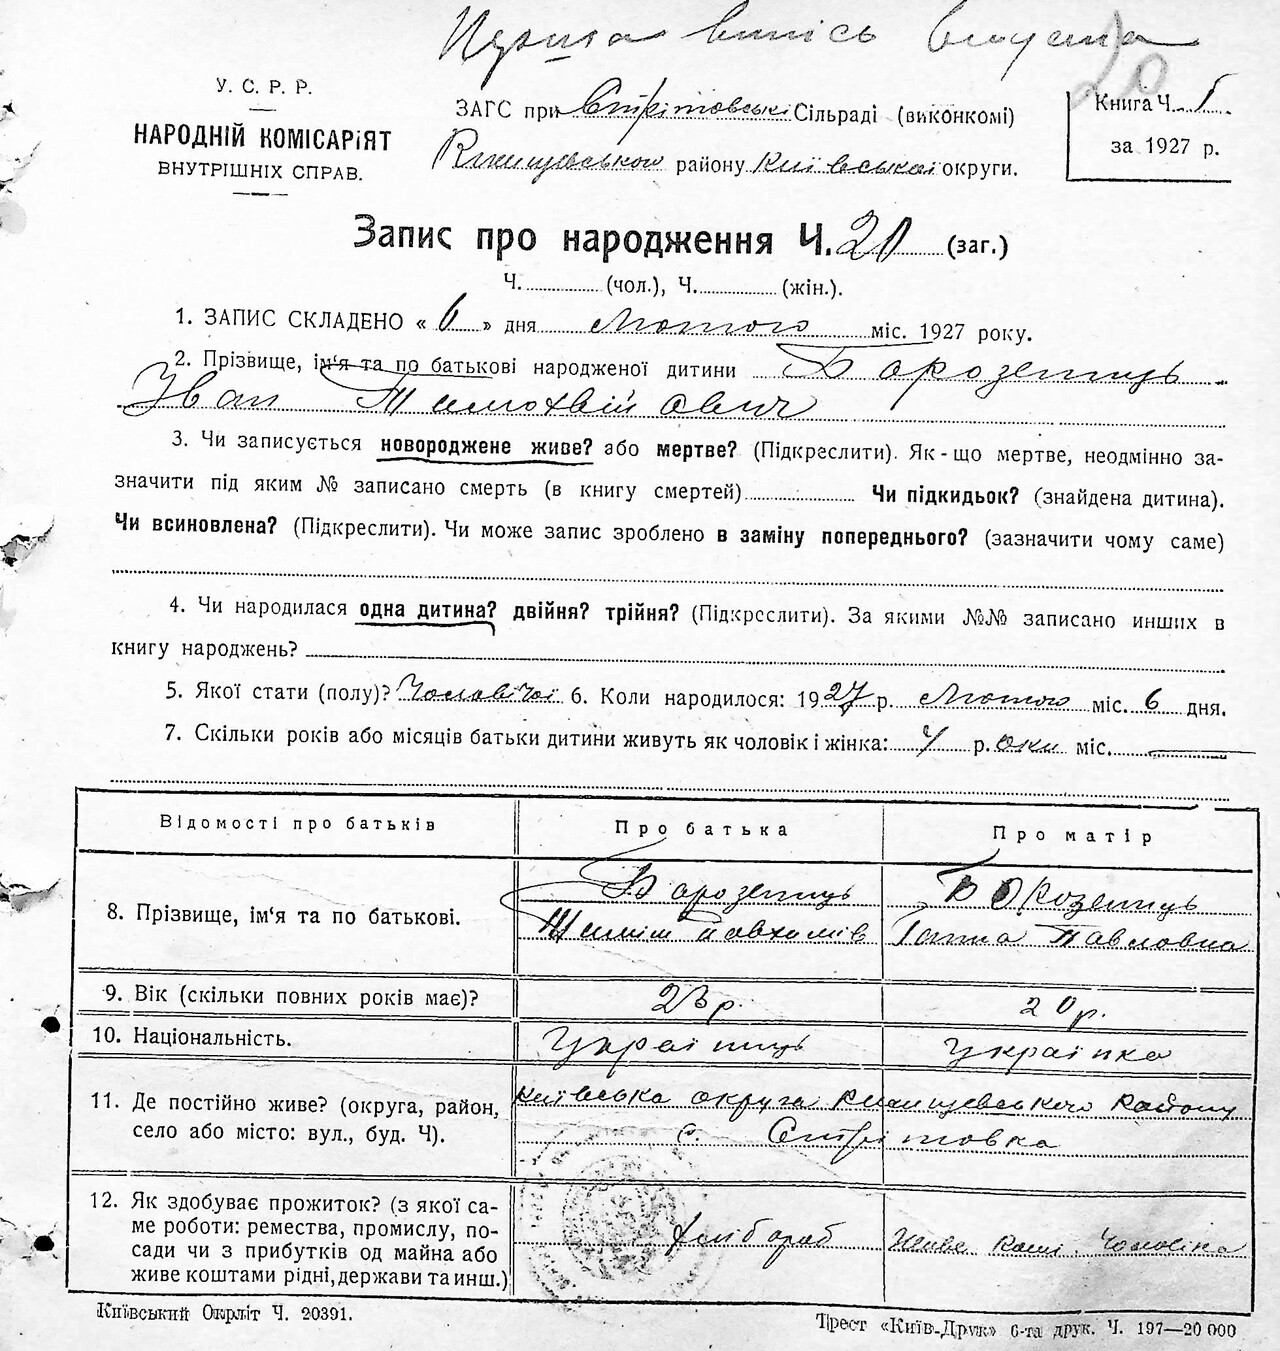 Перша випись видана
20
У. С. Р. Р.
НАРОДНІЙ КОМІСАРІЯТ
ВНУТРІШНІХ СПРАВ.
ЗАГС при Стрітовські Сільраді (виконкомі)
Ржищевського району Київської округи.
Книга Ч. 1
за 1927 р.
Запис про народження Ч. 20 (заг.)
Ч. (чол.), Ч. (жін.).
1. ЗАПИС СКЛАДЕНО « 6 » дня Лютого міс. 1927 року.
2. Прізвище, ім'я та по батькові народженої дитини Бороземць
Іван Тимохвійович
3. Чи записується новороджене живе? або мертве? (Підкреслити). Як-що мертве, неодмінно за-
значити під яким № записано смерть (в книгу смертей) Чи підкидьок? (знайдена дитина).
Чи всиновлена? (Підкреслити). Чи може запис зроблено в заміну попереднього? (зазначити чому саме)
4. Чи народилася одна дитина? двійня? трійня? (Підкреслити). За якими №№ записано инших в
книгу народжень?
5. Якої стати (полу)? Чоловічої 6. Коли народилося: 1927 р. Лютого міс. 6 дня.
7. Скільки років або місяців батьки дитини живуть як чоловік і жінка: 4 р. оки міс.
Відомості про батьків Про батька Про матір
8. Прізвище, ім'я та по батькові.
Бороземць
Бороземць
Ганна Павловна
9. Вік (скільки повних років має)? 23 р. 20 р.
10. Національність. Українць Українка
11. Де постійно живе? (округа, район,
село або місто: вул., буд. Ч).
Київська округа Ржищевського району
с. Стрітовка
12. Як здобуває прожиток? (з якої са-
ме роботи: ремества, промислу, по-
сади чи з прибутків од майна або
живе коштами рідні, держави та инш.)
хлібороб Живе кош. Чоловіка
Київський Окрліт Ч. 20391.
Трест «Київ-Друк» 6-та друк. Ч. 197—20 000